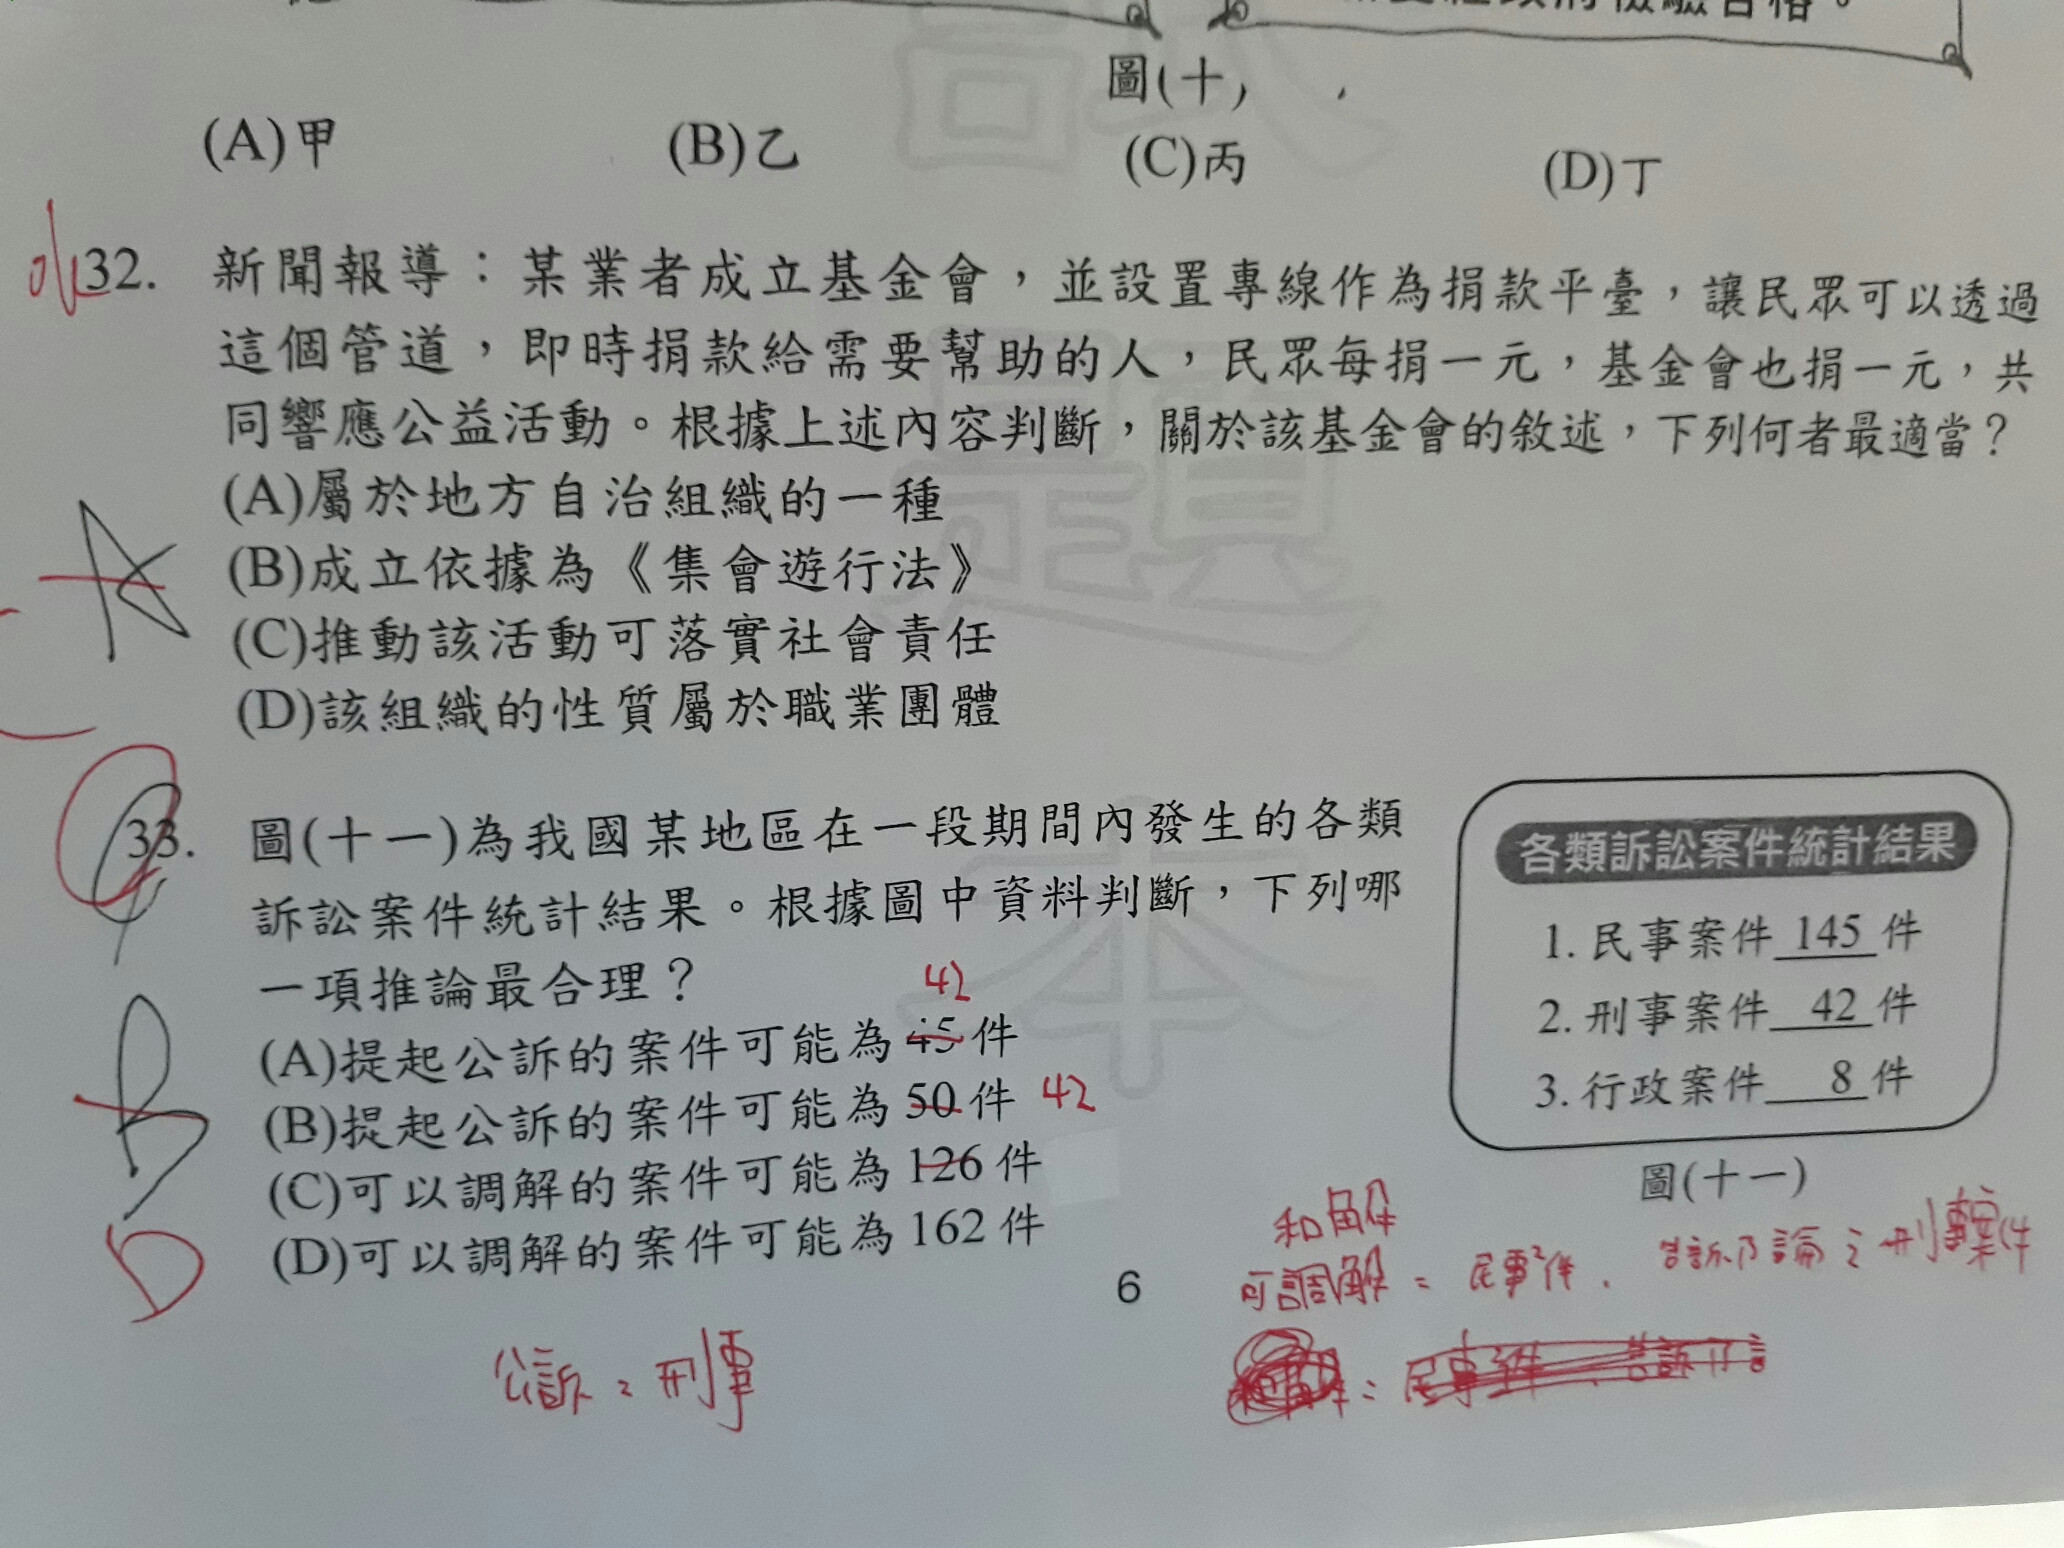 圖(十)
(A)甲 (B)乙 (C)丙 (D)丁
32. 新聞報導：某業者成立基金會，並設置專線作為捐款平臺，讓民眾可以透過
這個管道，即時捐款給需要幫助的人，民眾每捐一元，基金會也捐一元，共
同響應公益活動。根據上述內容判斷，關於該基金會的敘述，下列何者最適當？
(A)屬於地方自治組織的一種
(B)成立依據為《集會遊行法》
(C)推動該活動可落實社會責任
(D)該組織的性質屬於職業團體
33. 圖(十一)為我國某地區在一段期間內發生的各類
訴訟案件統計結果。根據圖中資料判斷，下列哪
一項推論最合理？
42
(A)提起公訴的案件可能為 45 件
(B)提起公訴的案件可能為 50 件 42
(C)可以調解的案件可能為 126 件
(D)可以調解的案件可能為 162 件
B
D
各類訴訟案件統計結果
1. 民事案件 145 件
2. 刑事案件 42 件
3. 行政案件 8 件
圖(十一)
和解
可調解 = 民事件．告訴乃論之刑事案件
6
公訴：刑事